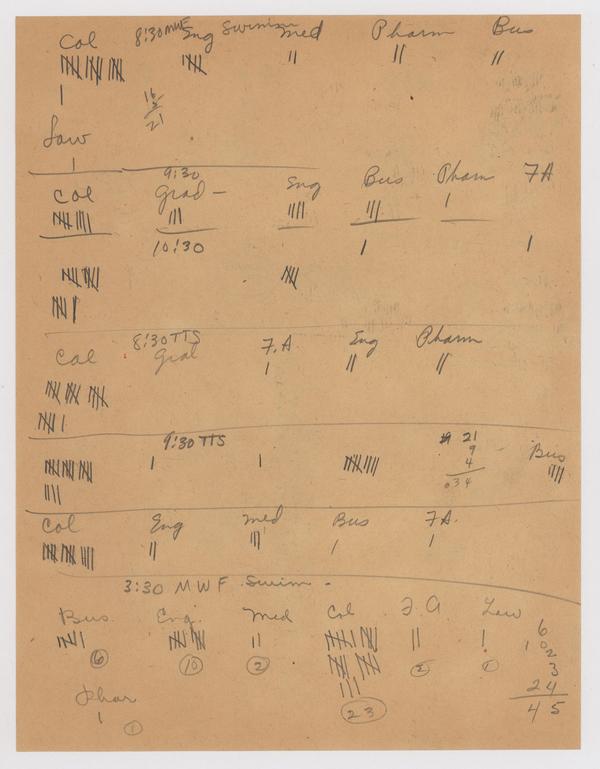 8:30 MWF Swimism
Col Eng Med Pharm Bus
16
5
21
Law
9:30
Col Grad - Eng Bus Pharm FA
10:30
8:30 TTS
Col Grad F.A Eng Pharm
9:30 TTS
21
9
4
034
Bus
Col Eng Med Bus FA.
3:30 MWF Swim -
Bus Eng. Med Col F A Law
6
10
2
3
24
45
6 10 2 23 2 1
Phar
1